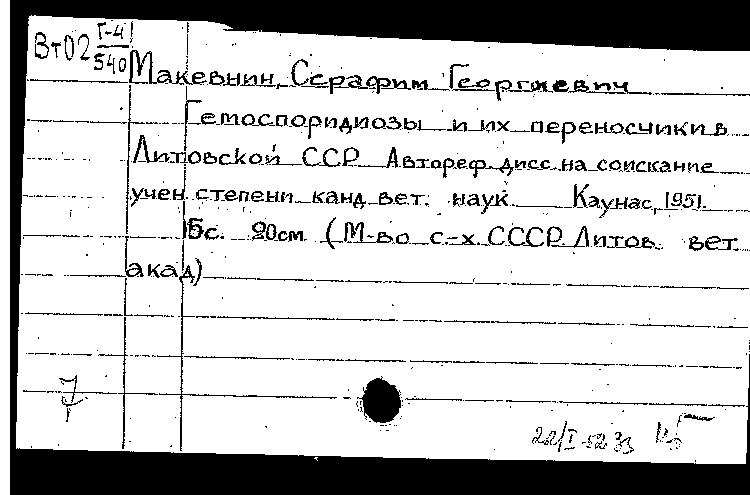 Вт02 Г-4
540
Макевнин, Серафим Георгиевич
Гемоспоридиозы и их переносчики в
Литовской ССР Автореф. дисс. на соискание
учен. степени канд. вет. наук Каунас, 1951.
20см (М-во с-х. СССР. Литов. вет.
акад)
22/I-52